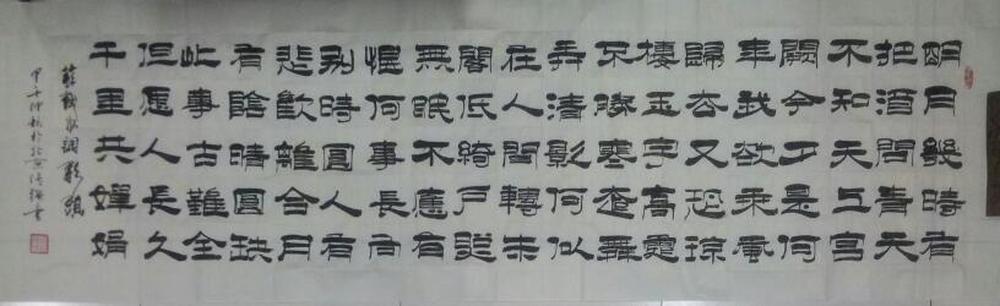 明月幾時有
把酒問青天
不知天上宫
闕今夕是何
年我欲乘風
歸去又恐琼
樓玉宇高處
不勝寒起舞
弄清影何似
在人間轉朱
閣低綺户照
無眠不應有
恨何事長向
别時圓人有
悲歡離合月
有陰晴圓缺
此事古難全
但愿人長久
千里共嬋娟
蘇軾水調歌頭
甲午仲秋於書